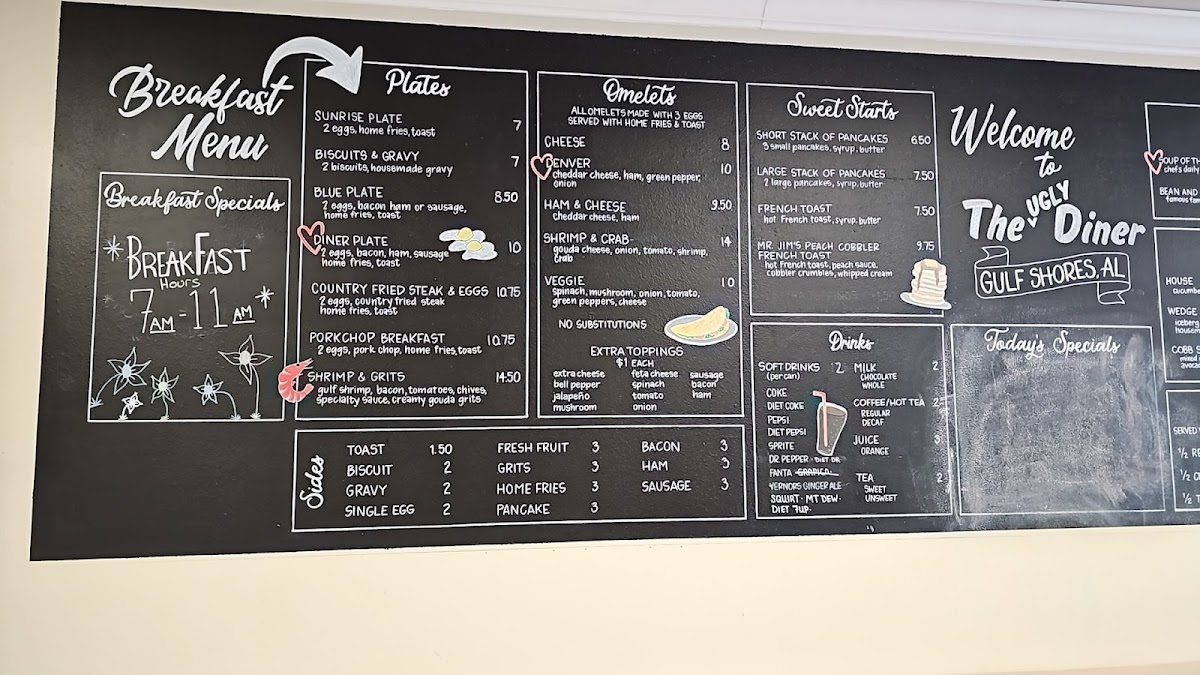 Breakfast
Menu
Breakfast Specials
BREAKFAST
HOURS
7AM - 11AM
Plates
SUNRISE PLATE 7
2 eggs, home fries, toast
BISCUITS & GRAVY 7
2 biscuits, housemade gravy
BLUE PLATE 8.50
2 eggs, bacon ham or sausage,
home fries, toast
DINER PLATE 10
2 eggs, bacon, ham, sausage
home fries, toast
COUNTRY FRIED STEAK & EGGS 10.75
2 eggs, country fried steak
home fries, toast
PORKCHOP BREAKFAST 10.75
2 eggs, pork chop, home fries, toast
SHRIMP & GRITS 14.50
gulf shrimp, bacon, tomatoes, chives,
specialty sauce, creamy gouda grits
Omelets
ALL OMELETS MADE WITH 3 EGGS
SERVED WITH HOME FRIES & TOAST
CHEESE 8
DENVER 10
cheddar cheese, ham, green pepper,
onion
HAM & CHEESE 9.50
cheddar cheese, ham
SHRIMP & CRAB- 14
gouda cheese, onion, tomato, shrimp,
crab
VEGGIE 10
spinach, mushroom, onion, tomato,
green peppers, cheese
NO SUBSTITUTIONS
EXTRA TOPPINGS
$1 EACH
extra cheese feta cheese sausage
bell pepper spinach bacon
jalapeño tomato ham
mushroom onion
Sweet Starts
SHORT STACK OF PANCAKES 6.50
3 small pancakes, syrup, butter
LARGE STACK OF PANCAKES 7.50
2 large pancakes, syrup, butter
FRENCH TOAST 7.50
hot French toast, syrup, butter
MR. JIM'S PEACH COBBLER 9.75
FRENCH TOAST
hot French toast, peach sauce,
cobbler crumbles, whipped cream
Drinks
SOFT DRINKS 2
(per can)
COKE
DIET COKE
PEPSI
DIET PEPSI
SPRITE
DR PEPPER · DIET DR
FANTA
VERNORS GINGER ALE
SQUIRT · MT DEW ·
DIET 7UP ·
MILK 2
CHOCOLATE
WHOLE
COFFEE/HOT TEA 2
REGULAR
DECAF
JUICE 3
ORANGE
TEA 2
SWEET
UNSWEET
Sides
TOAST 1.50 FRESH FRUIT 3 BACON 3
BISCUIT 2 GRITS 3 HAM 3
GRAVY 2 HOME FRIES 3 SAUSAGE 3
SINGLE EGG 2 PANCAKE 3
Welcome
to
The UGLY Diner
GULF SHORES, AL
Today's Specials
SOUP OF TH
chef's daily
BEAN AND
famous fam
HOUSE
cucumbe
WEDGE
iceberg
housem
COBB S
mixed
avocad
SERVED
1/2 RE
1/2 C
1/2 T